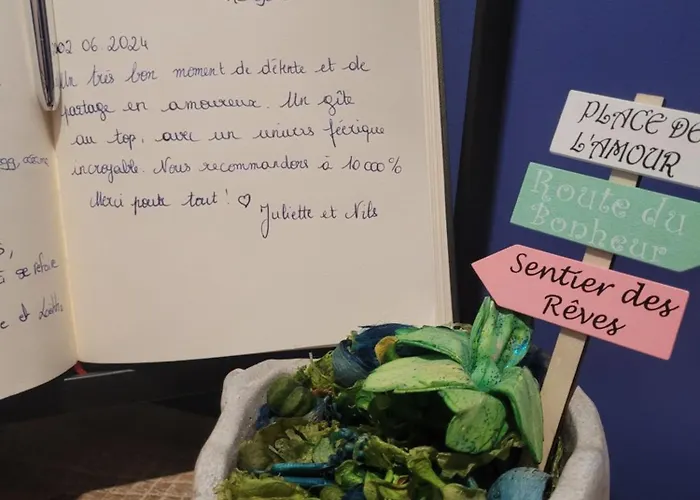 02 06 2024
Un très bon moment de détente et de
partage en amoureux. Un gîte
au top, avec un univers féérique
incroyable. Nous recommandons à 10 000 %
Merci pour tout ! ♡
Juliette et Nils
PLACE DE
L'AMOUR
Route du
Bonheur
Sentier des
Rêves